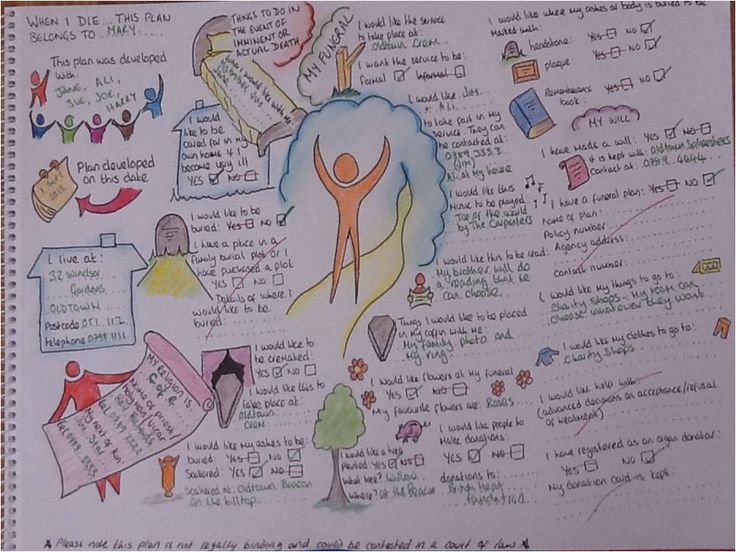 WHEN I DIE... THIS PLAN
BELONGS TO MARY.....
This plan was developed
with:
JANE, ALI,
SUE, JOE,
HARRY
Plan developed
on this date
I live at:
32 Windsor
Gardens
OLDTOWN
Postcode OTL 11Z
telephone 0798 1111
MY RELIGION IS
C of E
Name of priest/
holyman/vicar
Tel. 0799 2222
My next of kin:
Tel. 0799 3333
THINGS TO DO IN
THE EVENT OF
IMMINENT OR
ACTUAL DEATH
I would
like to be
cared for in my
own home if I
become very ill
YES NO
I would like to be
buried: YES NO
I have a place in a
family burial plot or I
have purchased a plot
YES NO
Details of where I
would like to be
buried:
I would like to
be cremated:
YES NO
I would like this to
take place at:
Oldtown
Crem
I would like my ashes to be:
buried: YES NO
Scattered: YES NO
Scattered at: Oldtown Beacon
on the hilltop
MY FUNERAL
I would like the service
to take place at:
Oldtown Crem
I want the service to be:
formal informal
I would like Jim
+ Ali
to take part in my
service. They can
be contacted at:
0789 3333
(Jim)
Ali at my house
I would like this
music to be played
Top of the world
by The Carpenters
I would like this to be read:
My brother will do
a reading that he
can choose
Things I would like to be placed
in my coffin with me
My family photo and
my ring
I would like flowers at my funeral
YES NO
My favourite flowers are: Roses
I would like a tree
planted YES NO
What type? Willow
Where? At the Beacon
I would like people to
make donations:
YES NO
donations to:
British Heart
Foundation
I would like where my ashes or body is buried to be
marked with:
headstone: YES NO
plaque YES NO
Remembrance
book: YES NO
MY WILL
I have made a will: YES NO
It is kept with: Oldtown Solicitors
Contact at: 0798 4444
I have a funeral plan: YES NO
Name of plan:
Policy number
Agency address:
Contact number:
I would like my things to go to:
Charity shops - my team can
choose whatever they want
I would like my clothes to go to:
Charity shops
I would like help with:
(advanced decisions on acceptance/refusal
of treatment)
I have registered as an organ donator:
YES NO
My donation card is kept
★ Please note this plan is not legally binding and could be contested in a court of law ★